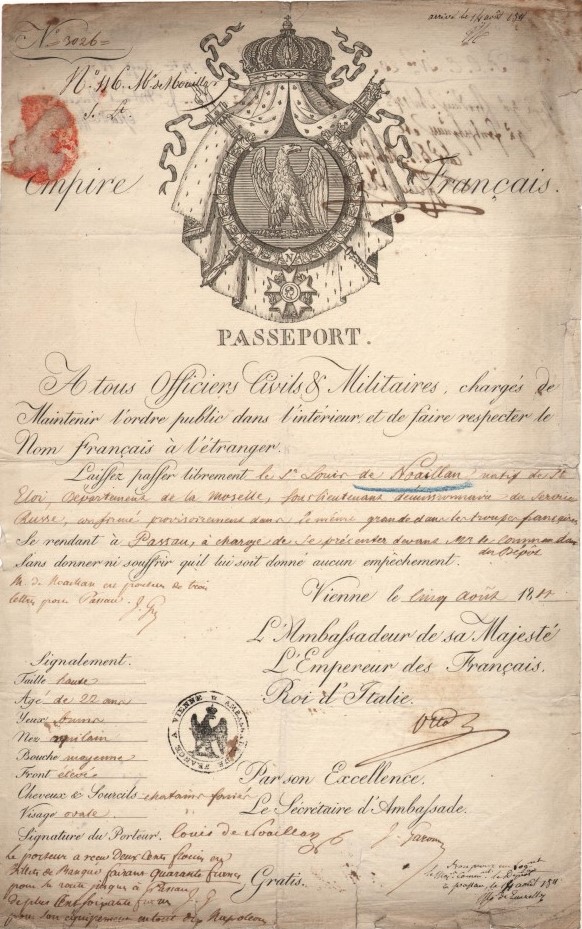 arrivé le 14 août 1811
N.° 3026
N.° 416. Mr de Noaillan
Empire Français.
N
PASSEPORT.
A tous Officiers Civils & Militaires, chargés de
Maintenir l'ordre public dans l'intérieur, et de faire respecter le
Nom français à l'étranger.
Laissez passer librement le Sr Louis de Noaillan natif de St
Eloi, Département de la Moselle, sous lieutenant démissionnaire du Service
Russe, confirmé provisoirement dans le même grade dans les troupes françaises
Se rendant à Passau, à charge de se présenter devant Mr le Commandant
du Dépôt
Sans donner ni souffrir qu'il lui soit donné aucun empêchement.
M. de Noaillan est porteur de trois
lettres pour Passau.
Vienne le cinq août 1811
L'Ambassadeur de sa Majesté
L'Empereur des Français.
Roi d'Italie.
Otto
Signalement.
Taille haute
Agé de 22 ans
Yeux bruns
Nez aquilain
Bouche moyenne
Front élevé
Cheveux & Sourcils chatains foncés
Visage ovale
AMBASSADE DE FRANCE A VIENNE
Par son Excellence.
Le Sécrétaire d'Ambassade.
Signature du Porteur. Louis de Noaillan
le porteur a reçu Deux Cents florins en
Billets de Banque faisant quarante francs
pour la route jusqu'à Passau
de plus Cent soixante francs
pour son équipement
Gratis.
à passau, le 14 août 1811